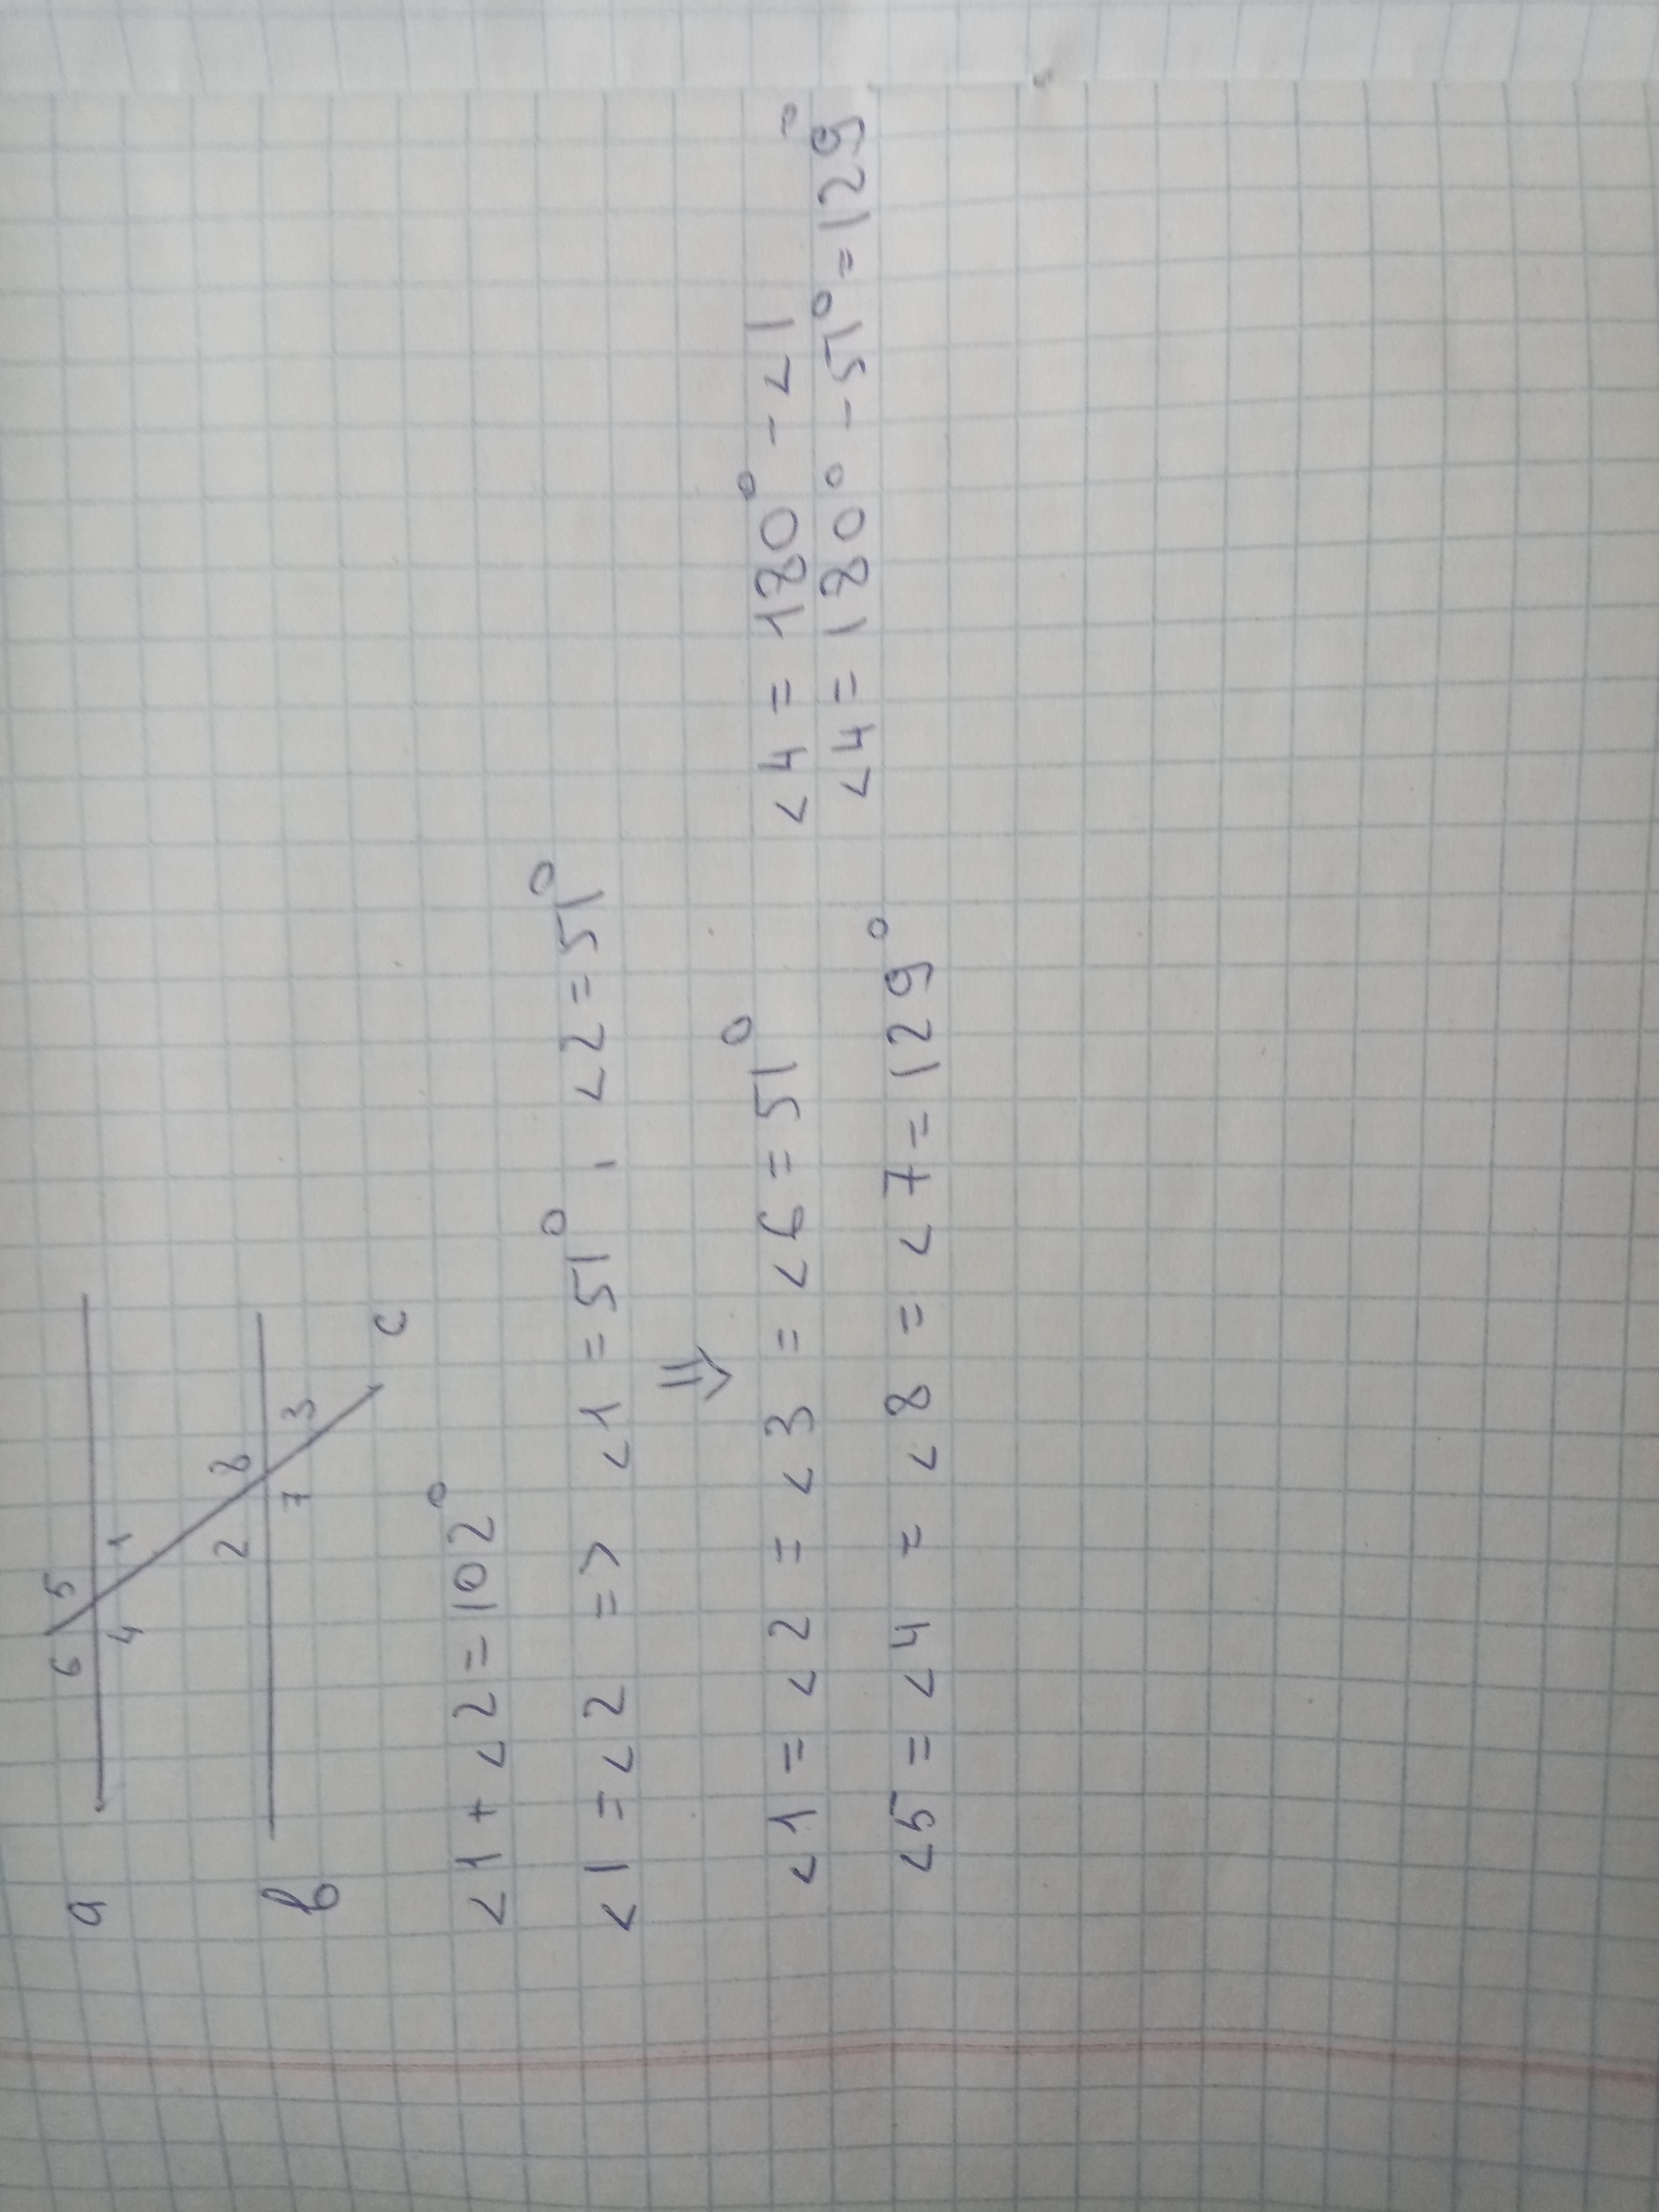 6 5
a
4 1
2 8
b
7 3
c
<1 + <2 = 102°
<1 = <2 => <1 = 51° , <2 = 51°
⇓
<1 = <2 = <3 = <6 = 51° <4 = 180° - <1
<4 = 180° - 51° = 129°
<5 = <4 = <8 = <7 = 129°